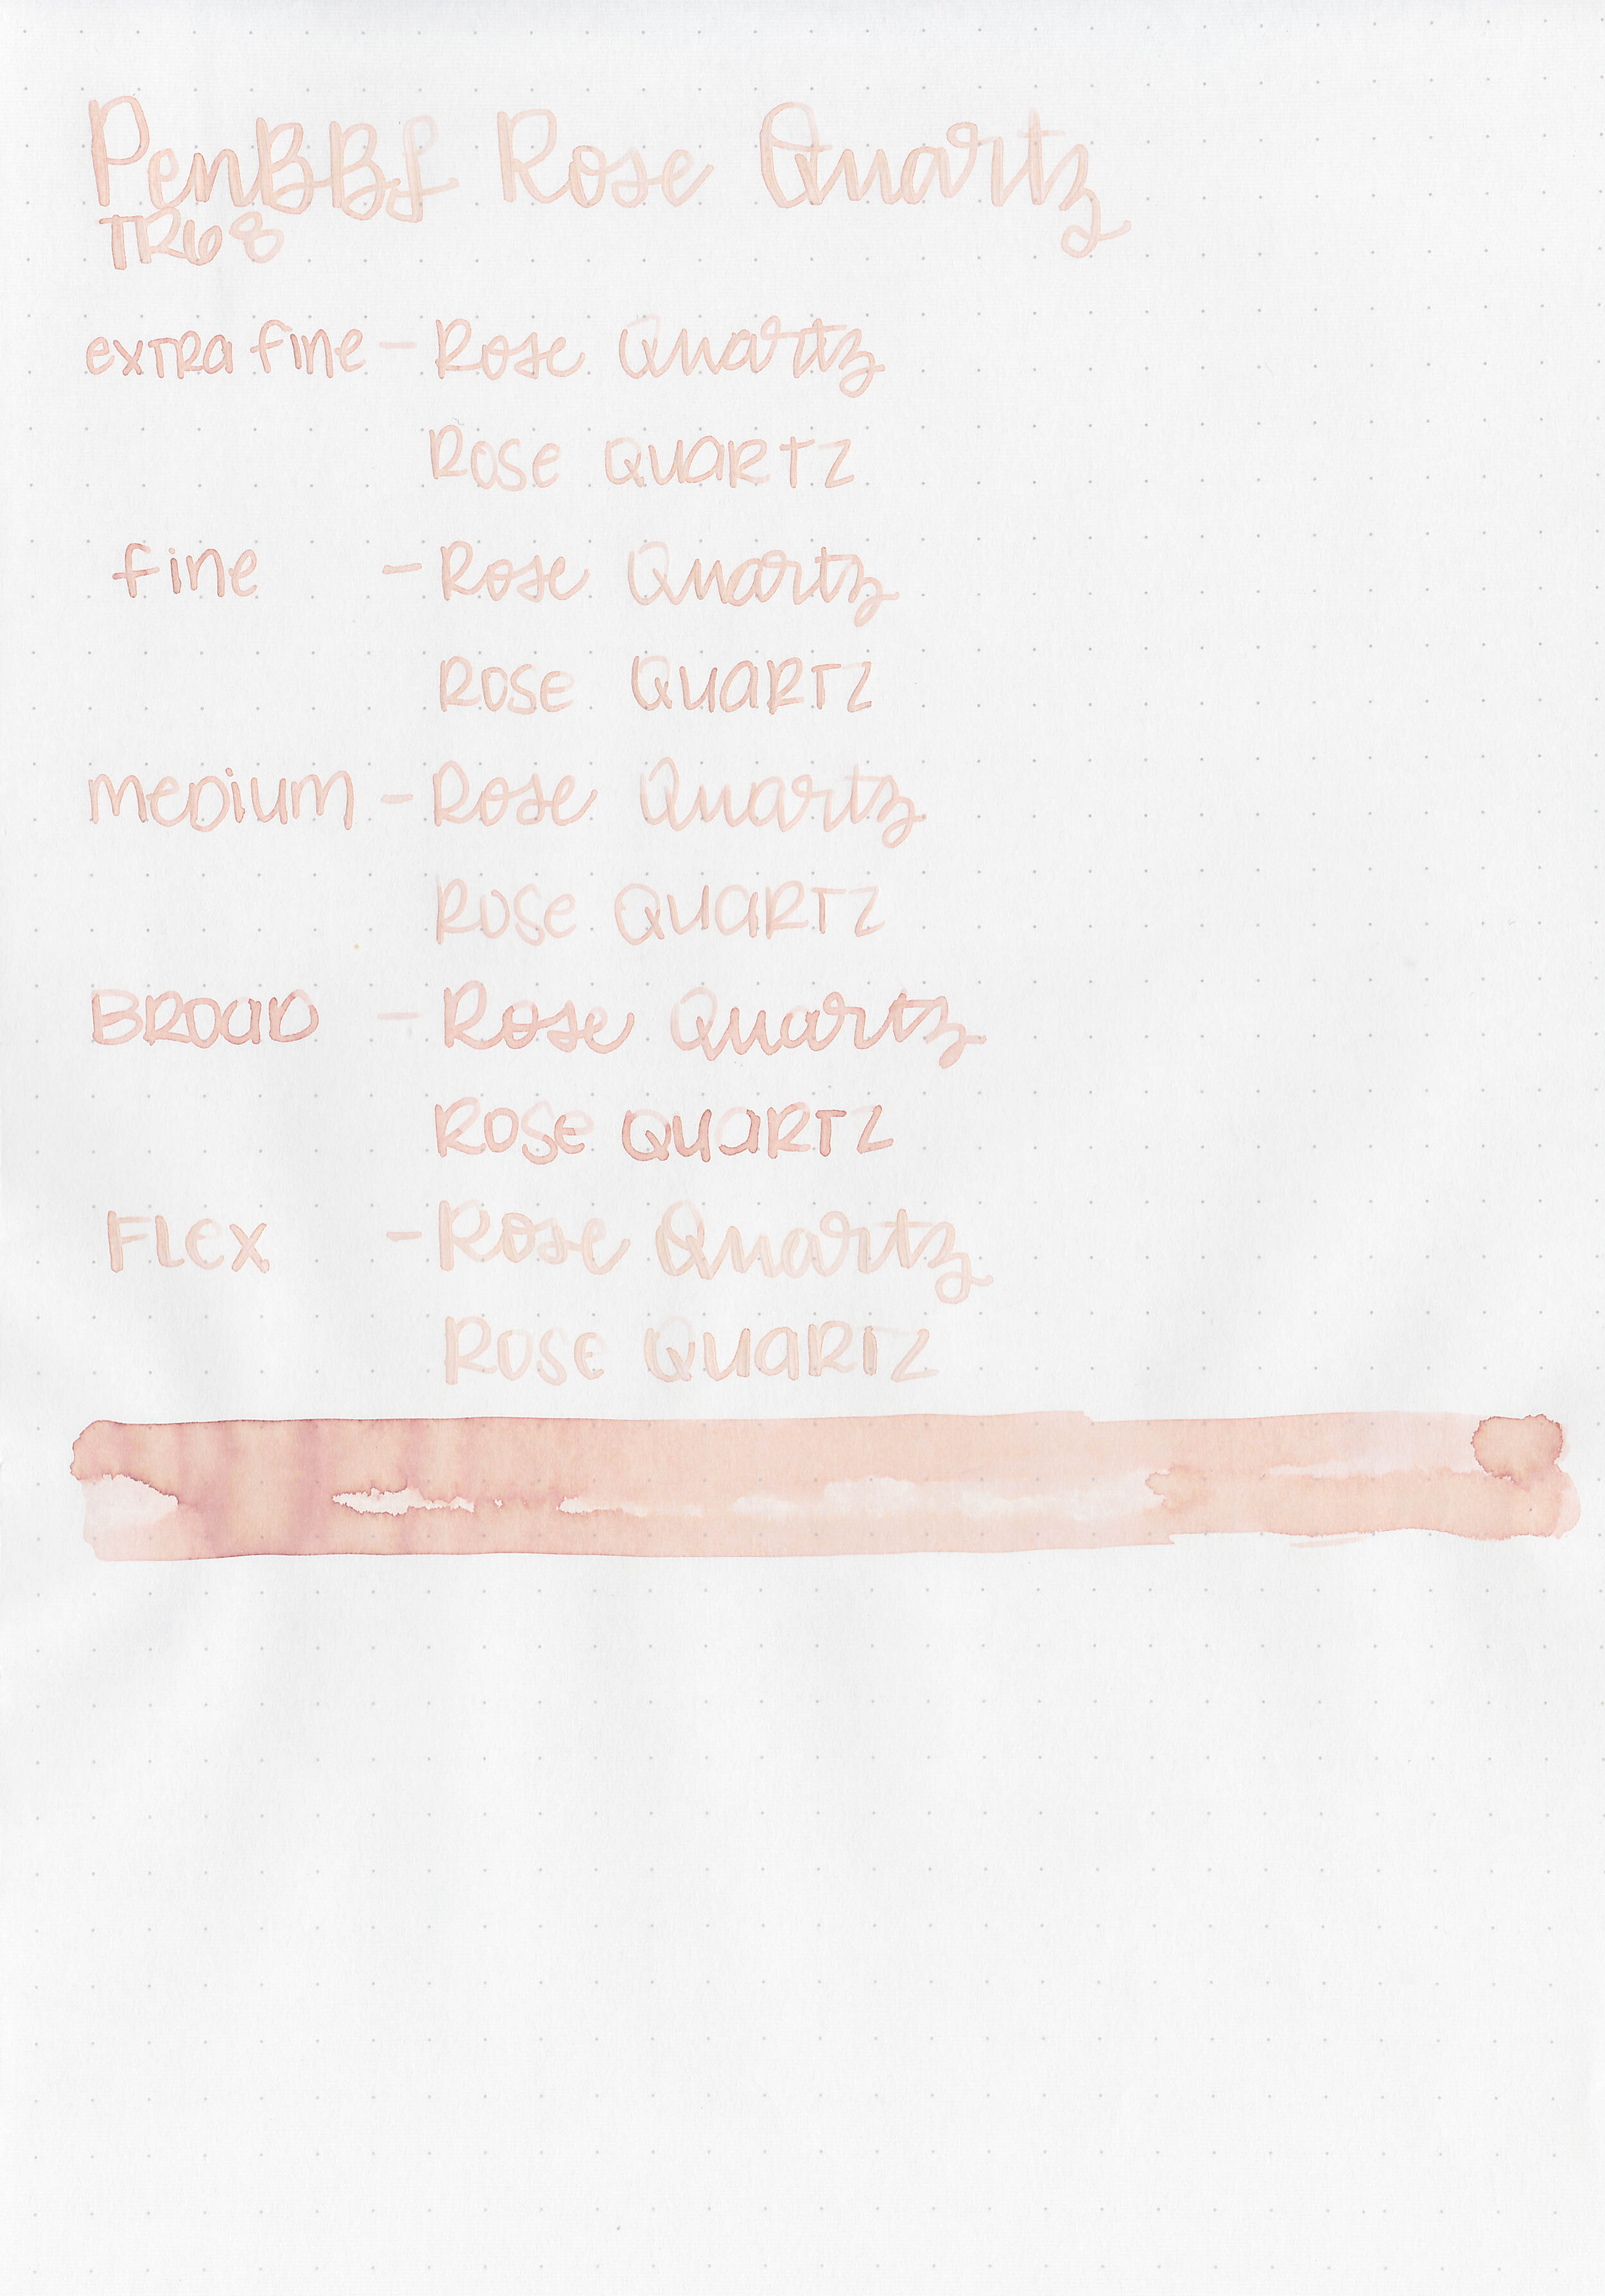 PenBBS Rose Quartz
TR68
extra fine - Rose Quartz
Rose Quartz
fine - Rose Quartz
Rose Quartz
medium - Rose Quartz
Rose Quartz
Broad - Rose Quartz
Rose Quartz
Flex - Rose Quartz
Rose Quartz